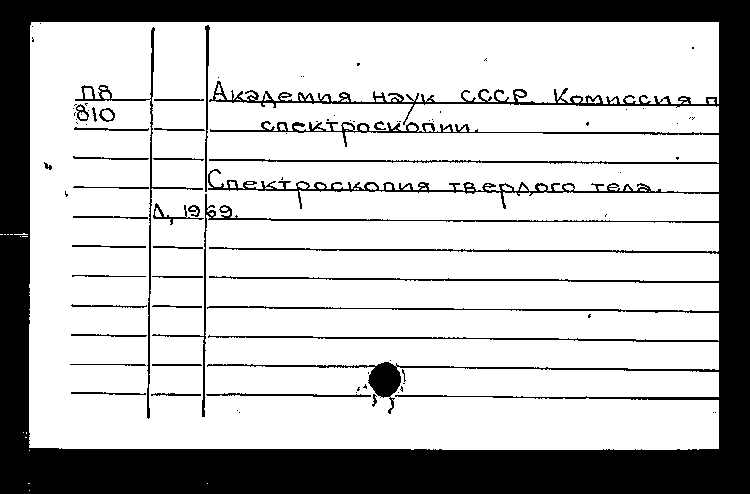 П8 Академия наук СССР. Комиссия п
810 спектроскопии.
Спектроскопия твердого тела.
Л., 1969.